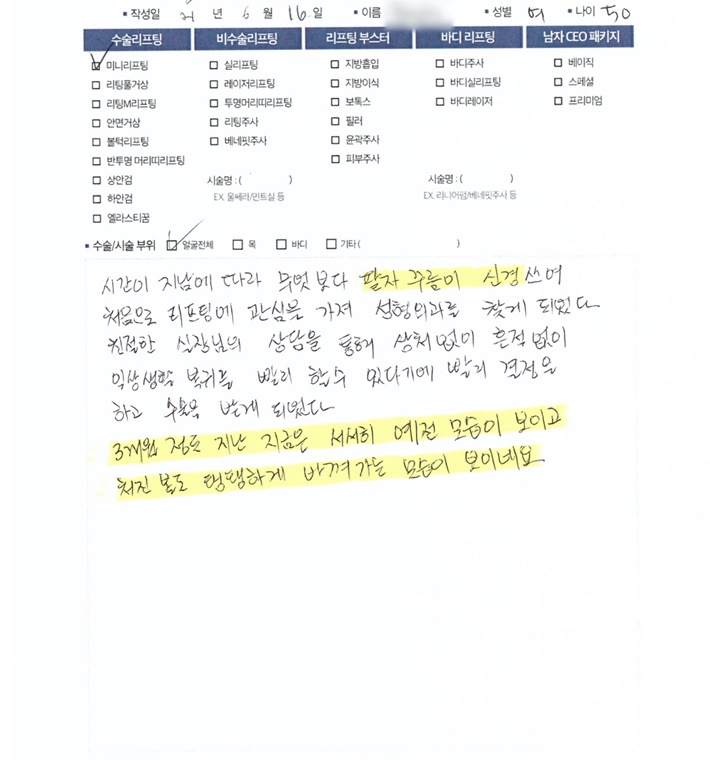 ▪ 작성일 21 년 6 월 16 일 ▪ 이름 ▪ 성별 여 ▪ 나이 50
수술리프팅 비수술리프팅 리프팅 부스터 바디 리프팅 남자 CEO 패키지
☑ 미니리프팅 □ 실리프팅 □ 지방흡입 □ 바디주사 □ 베이직
□ 리팅풀거상 □ 레이저리프팅 □ 지방이식 □ 바디실리프팅 □ 스페셜
□ 리팅M리프팅 □ 투명머리띠리프팅 □ 보톡스 □ 바디레이저 □ 프리미엄
□ 안면거상 □ 리팅주사 □ 필러
□ 볼턱리프팅 □ 베네핏주사 □ 윤곽주사
□ 반투명 머리띠리프팅 □ 피부주사
□ 상안검 시술명 : ( ) 시술명 : ( )
□ 하안검 EX. 울쎄라/민트실 등 EX. 리니어펌/베네핏주사 등
□ 엘라스티꿈
▪ 수술/시술 부위 ☑ 얼굴전체 □ 목 □ 바디 □ 기타 ( )
시간이 지남에 따라 무엇보다 팔자 주름이 신경쓰여
처음으로 리프팅에 관심을 가져 성형외과를 찾게 되었다
친절한 실장님의 상담을 통해 상처없이 흔적없이
일상생활 복귀를 빨리 할수 있다기에 빨리 결정을
하고 수술을 받게 되었다
3개월 정도 지난 지금은 서서히 예전 모습이 보이고
쳐진 볼도 탱탱하게 바껴가는 모습이 보이네요